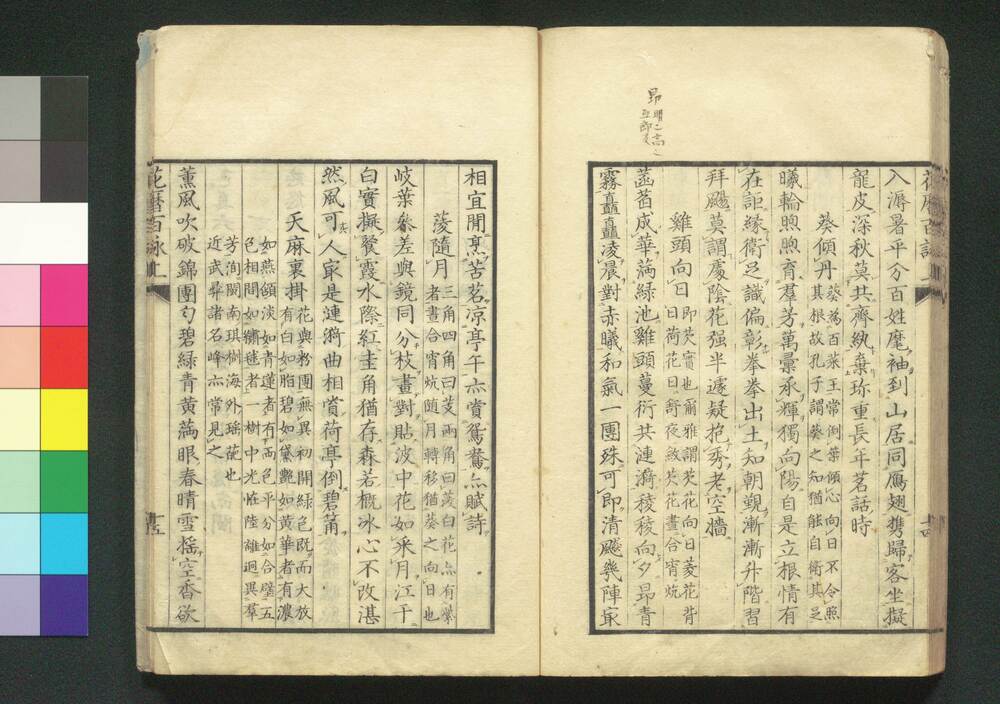 昴
明二高之
花暦百詠上
入溽暑平分百姓麾袖到山居同鴈翅携歸客坐擬
龍皮深秋莫共齊紈棄珎重長年茗話時
葵傾丹
葵為百菜王常倒葉傾心向日不令照
其根故孔子謂葵之知猶能自衛其足
曦輪煦煦育羣芳萬彙承輝獨向陽自是立根情有
在詎緣衛足識偏彰拳拳出土知朝覲漸漸升階習
拜颺莫謂處陰花强半遽疑抱秀老空墻
雞頭向日
即芡實也爾雅謂芡花向日菱花背
日荷花日舒夜斂芡花晝合宵炕
菡萏成華滿綠池雞頭蔓衍共漣漪稜稜向夕昴青
霧矗矗凌晨對赤曦和氣一團珠可即清颸幾陣㝡
十四
相宜閒烹苦茗凉亭午亦賞鴛鴦亦賦詩
蔆隨月
三角四角曰芰兩角曰菱白花亦有紫
者晝合宵炕随月轉移猶葵之向日也
岐葉叅差與鏡同分枝畫對貼波中花如采月江干
白實擬餐霞水際紅圭角猶存森若概冰心不改湛
然風可人家是連漪曲相賞荷亭倒碧筩
天麻裏掛
花與粉團無異初開緑色既而大放
有白如脂碧如黛艷如黄華者有濃
如燕頷淡如青蓮者有两色平分如合璧五
色相間如繡毬者一樹中光怪陸離迥異羣
芳洵閬南琪樹海外瑶葩也
近武彛諸名峰亦常見之
薰風吹破錦團勻碧綠青黄滿眼春晴雪揺空香欲
花暦百詠上
十五